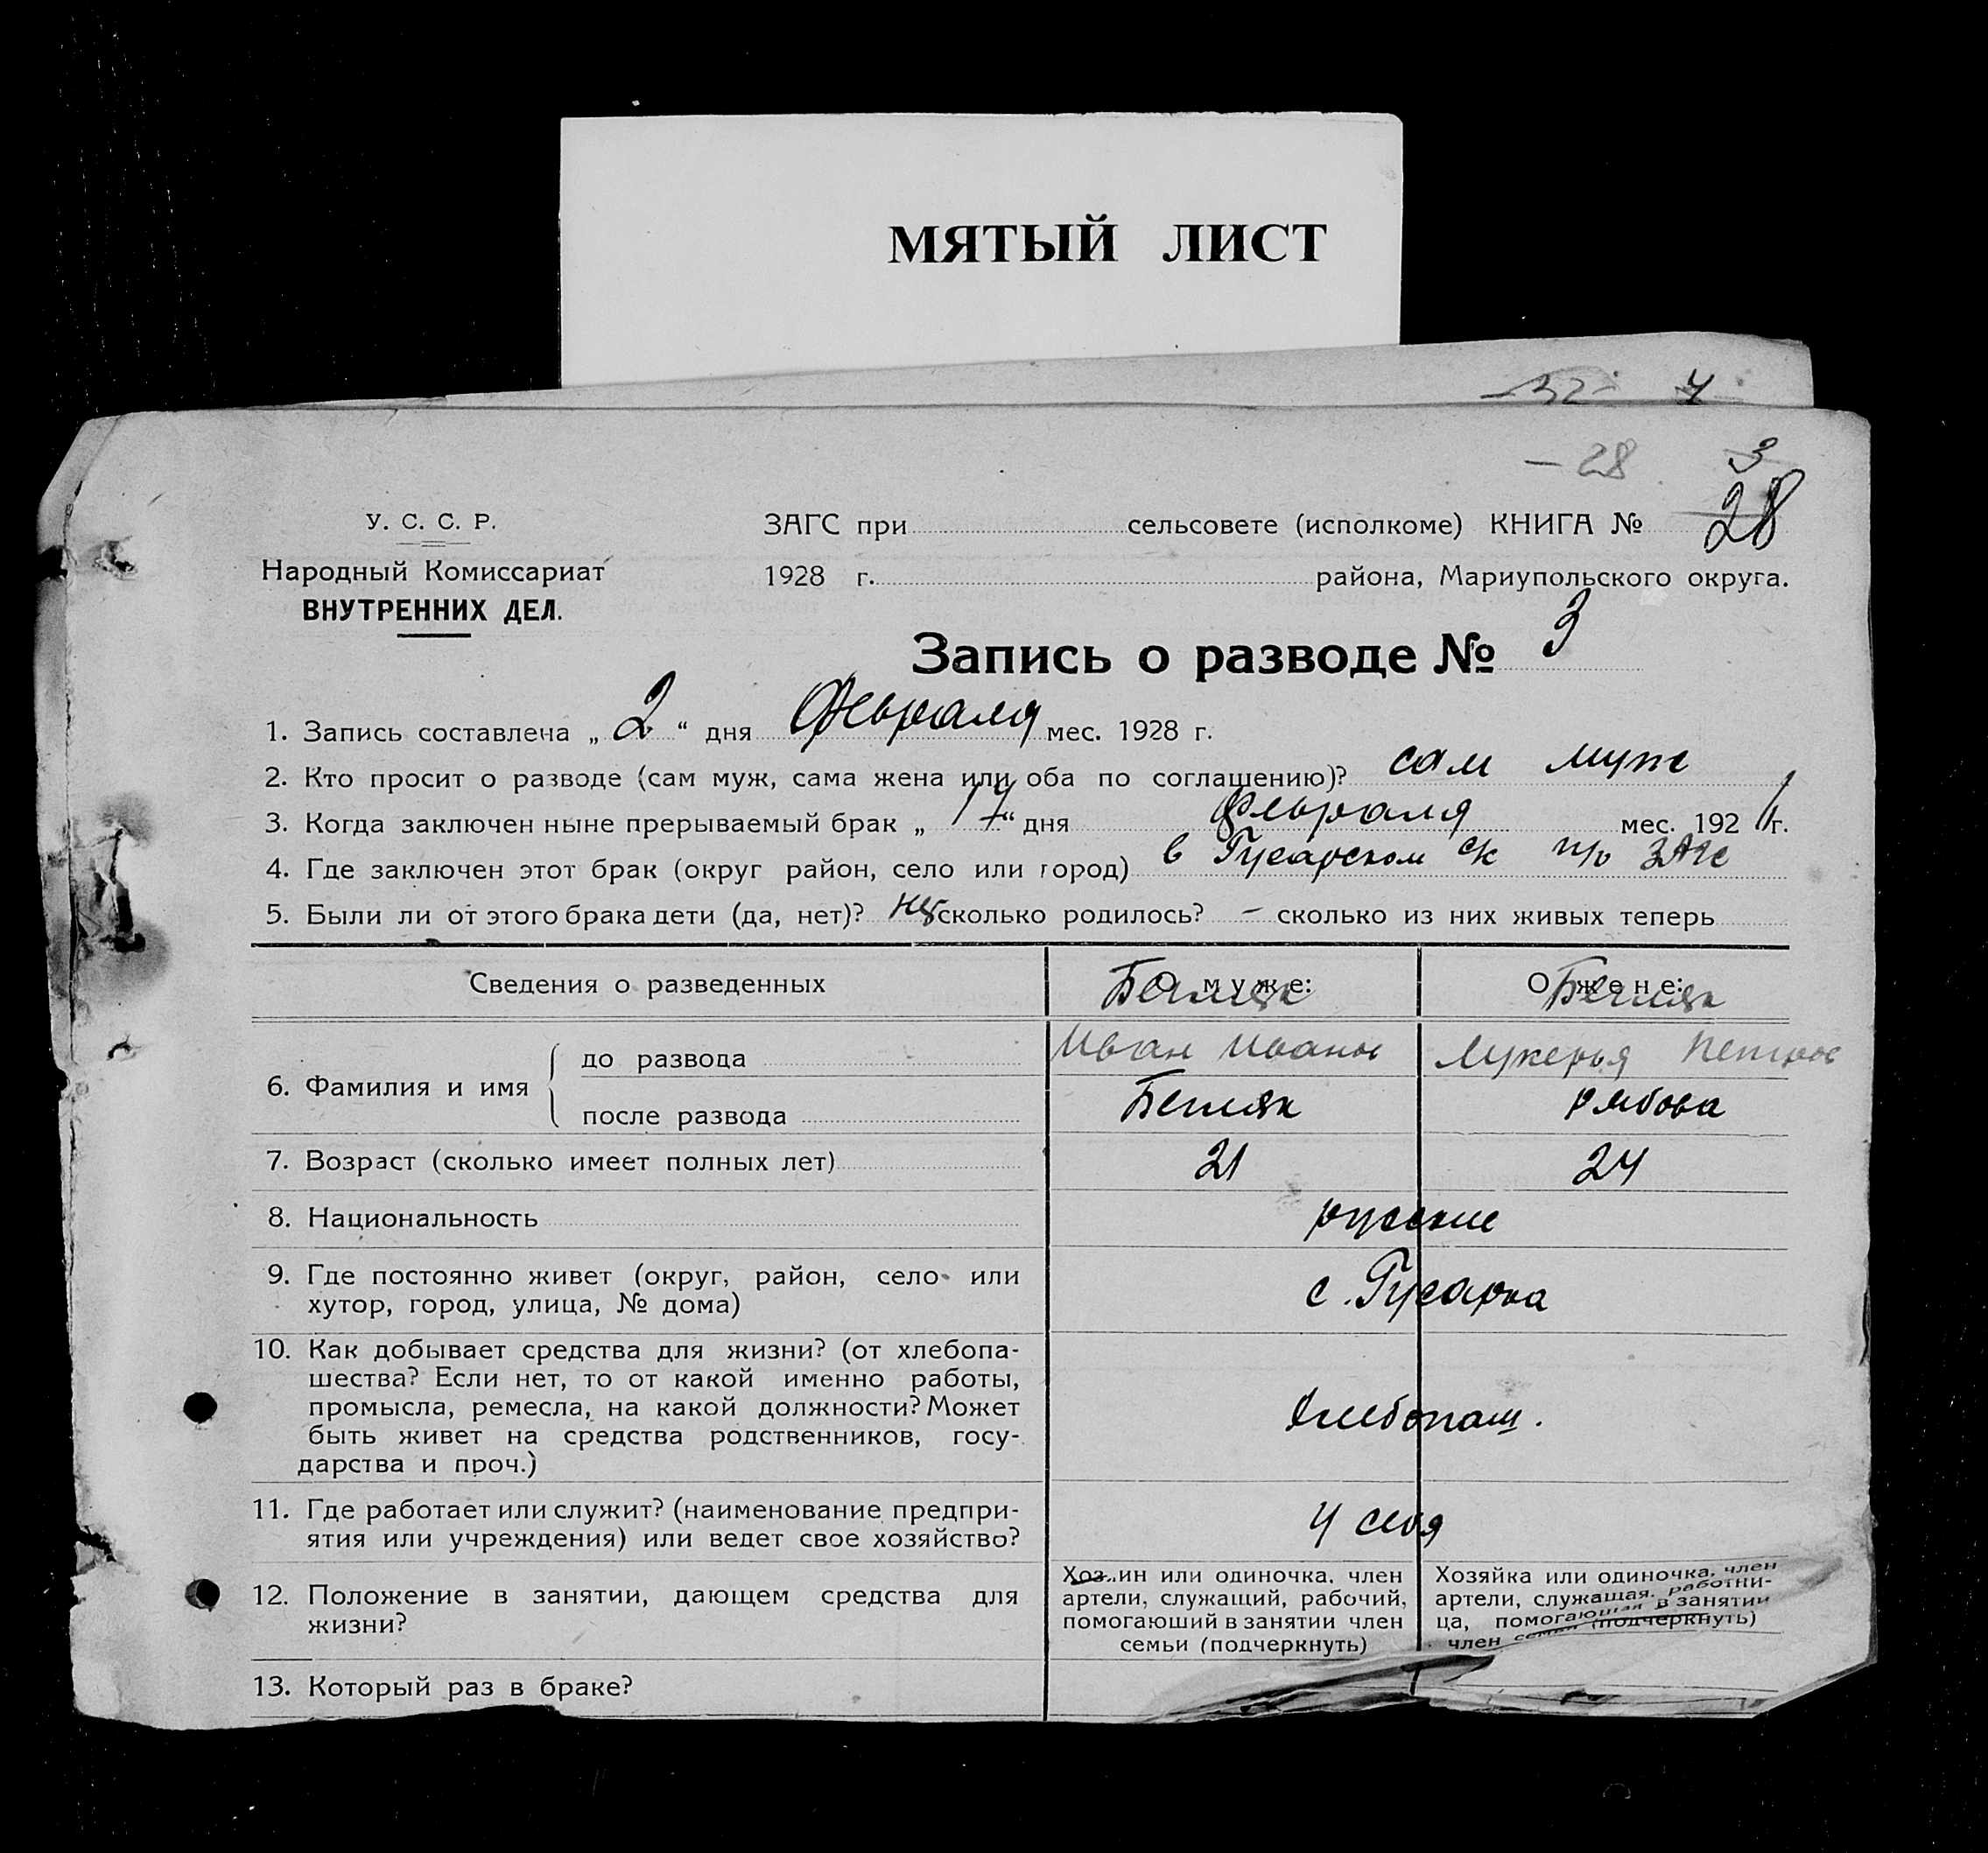 МЯТЫЙ ЛИСТ
-32- 4
-28 3
У. С. С. Р.
Народный Комиссариат
ВНУТРЕННИХ ДЕЛ.
ЗАГС при сельсовете (исполкоме) КНИГА № 28
1928 г. района, Мариупольского округа.
Запись о разводе № 3
1. Запись составлена „ 2 “ дня Февраля мес. 1928 г.
2. Кто просит о разводе (сам муж, сама жена или оба по соглашению)? сам муж
3. Когда заключен ныне прерываемый брак „ “ дня февраля мес. 192 г.
4. Где заключен этот брак (округ район, село или город) в Гусарском с/с ЗАГС
5. Были ли от этого брака дети (да, нет)? сколько родилось? - сколько из них живых теперь
Сведения о разведенных
О муже:
О жене:
6. Фамилия и имя
до развода
Иван Иванов
Лукерья Петров
после развода
Рябова
7. Возраст (сколько имеет полных лет) 21 24
8. Национальность русские
9. Где постоянно живет (округ, район, село или
хутор, город, улица, № дома)
с. Гусарка
10. Как добывает средства для жизни? (от хлебопа-
шества? Если нет, то от какой именно работы,
промысла, ремесла, на какой должности? Может
быть живет на средства родственников, госу-
дарства и проч.)
хлебопаш.
11. Где работает или служит? (наименование предпри-
ятия или учреждения) или ведет свое хозяйство?
у себя
12. Положение в занятии, дающем средства для
жизни?
Хоз..ин или одиночка, член
артели, служащий, рабочий,
помогаюший в занятии член
семьи (подчеркнуть)
Хозяйка или одиночка, член
артели, служащая, работни-
ца, помогающая в занятии
член семьи (подчеркнуть)
13. Который раз в браке?